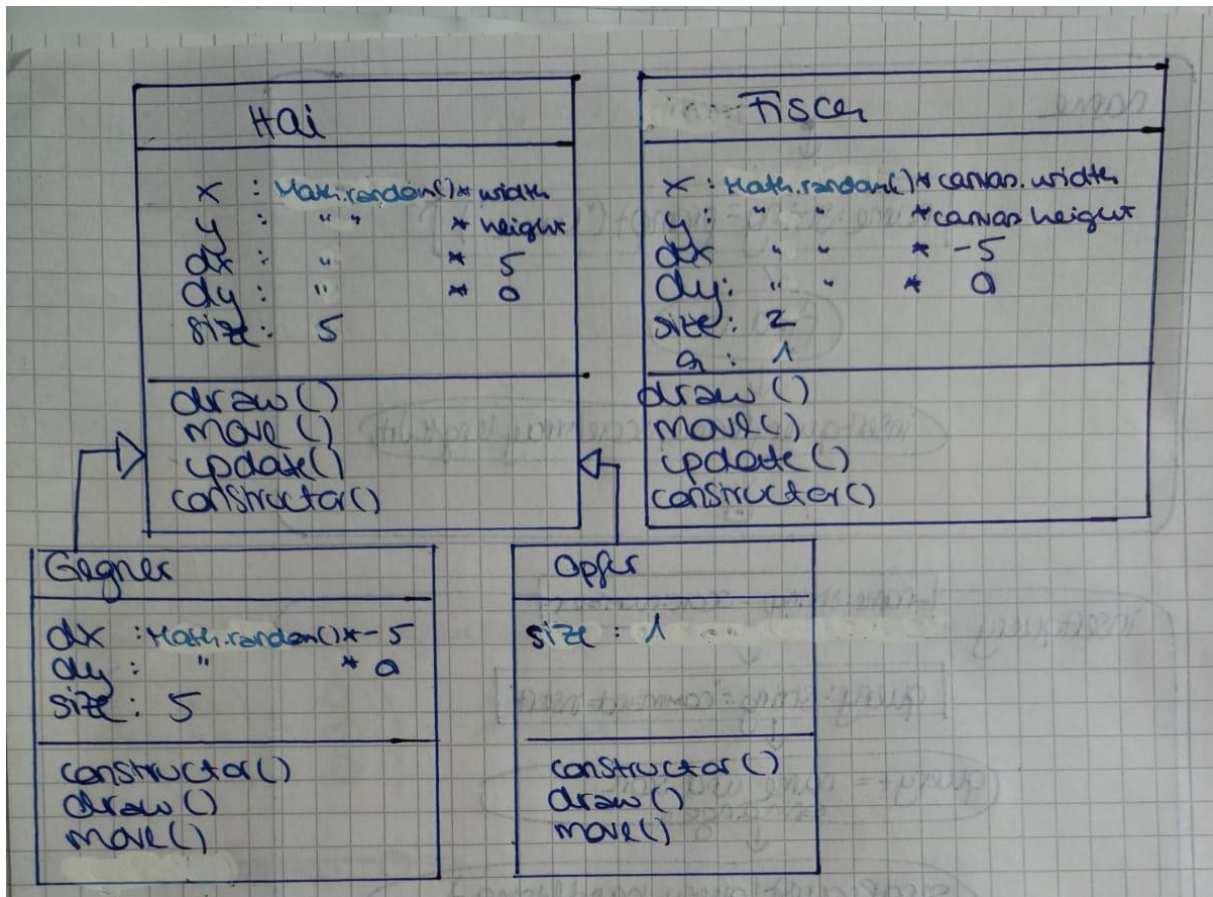 Hai
x : Math.random()* width
y : " " * height
dx : " * 5
dy : " * 0
size : 5
draw ()
move ()
update()
constructor()
Fisch
x : Math.random()* canvas.width
y : " " * canvas.height
dx " " * -5
dy: " " * 0
size: 2
: 1
draw ()
move()
update ()
constructor()
Gegner
dx : Math.random()* -5
dy : " * 0
size : 5
constructor()
draw ()
move()
Opfer
size : 1
constructor ()
draw ()
move()